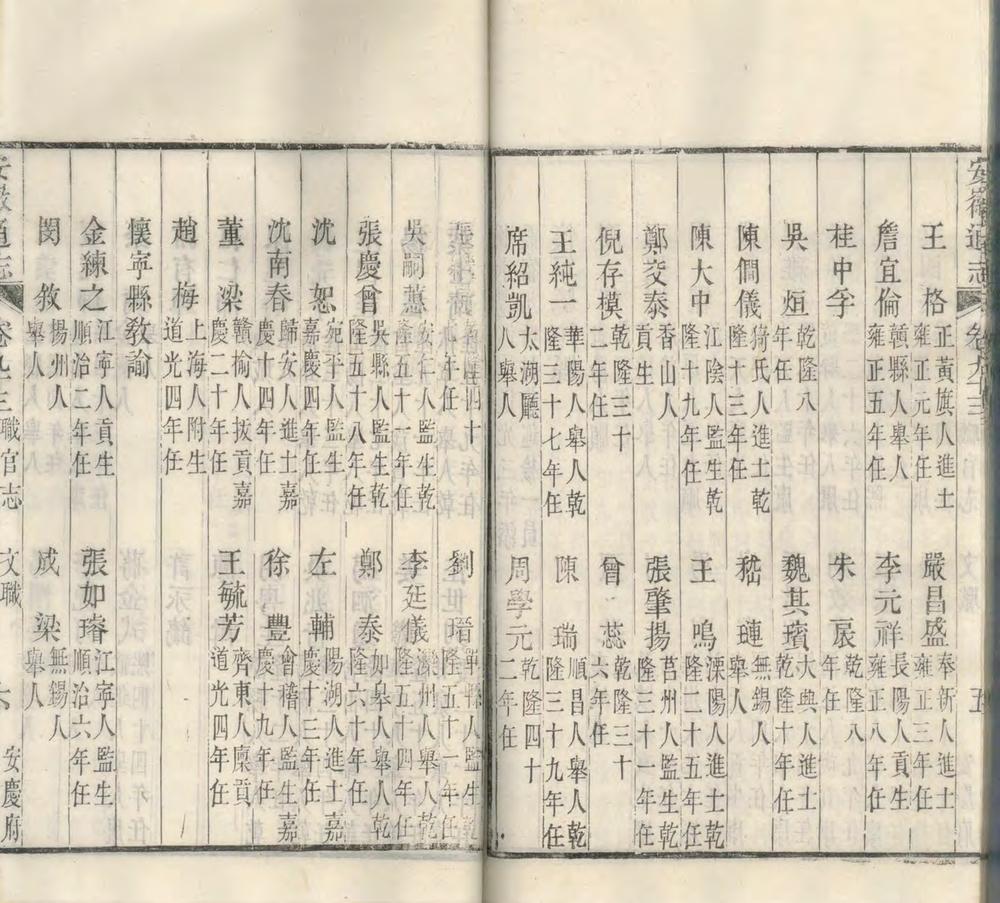 安徽通志 卷九十三 五
王格 正黃旗人進士雍正元年任 嚴昌盛 奉新人進士雍正三年任
詹宜倫 贛縣人舉人雍正五年任 李元祥 長陽人貢生雍正八年任
桂中孚 朱扆 乾隆八年任
吳烜 乾隆八年任 魏其璸 大興人進士乾隆十年任
陳僩儀 猗氏人進士乾隆十三年任 嵇璉 無錫人舉人
陳大中 江陰人監生乾隆十九年任 王鳴 溧陽人進士乾隆二十五年任
鄭交泰 香山人貢生 張肇揚 莒州人監生乾隆三十一年任
倪存模 乾隆三十二年任 曾蕊 乾隆三十六年任
王純一 華陽人舉人乾隆三十七年任 陳瑞 順昌人舉人乾隆三十九年任
席紹凱 太湖廳人舉人 周學元 乾隆四十二年任
乾隆四十九年任 劉瑨 單縣人監生乾隆五十一年任
吳嗣蕙 安仁人監生乾隆五十一年任 李廷儀 灤州人舉人乾隆五十四年任
張慶曾 吳縣人監生乾隆五十八年任 鄭泰 如皋人舉人乾隆六十年任
沈恕 宛平人監生嘉慶四年任 左輔 陽湖人進士嘉慶十三年任
沈南春 歸安人進士嘉慶十四年任 徐豐 會稽人監生嘉慶十九年任
董梁 贛榆人拔貢嘉慶二十年任 王毓芳 齊東人廩貢道光四年任
趙有梅 上海人附生道光四年任
懷寧縣教諭
金練之 江寧人貢生順治二年任 張如璿 江寧人監生順治六年任
閔敘 揚州人舉人 成梁 無錫人舉人
安徽通志 卷九十三 職官志 文職 六 安慶府